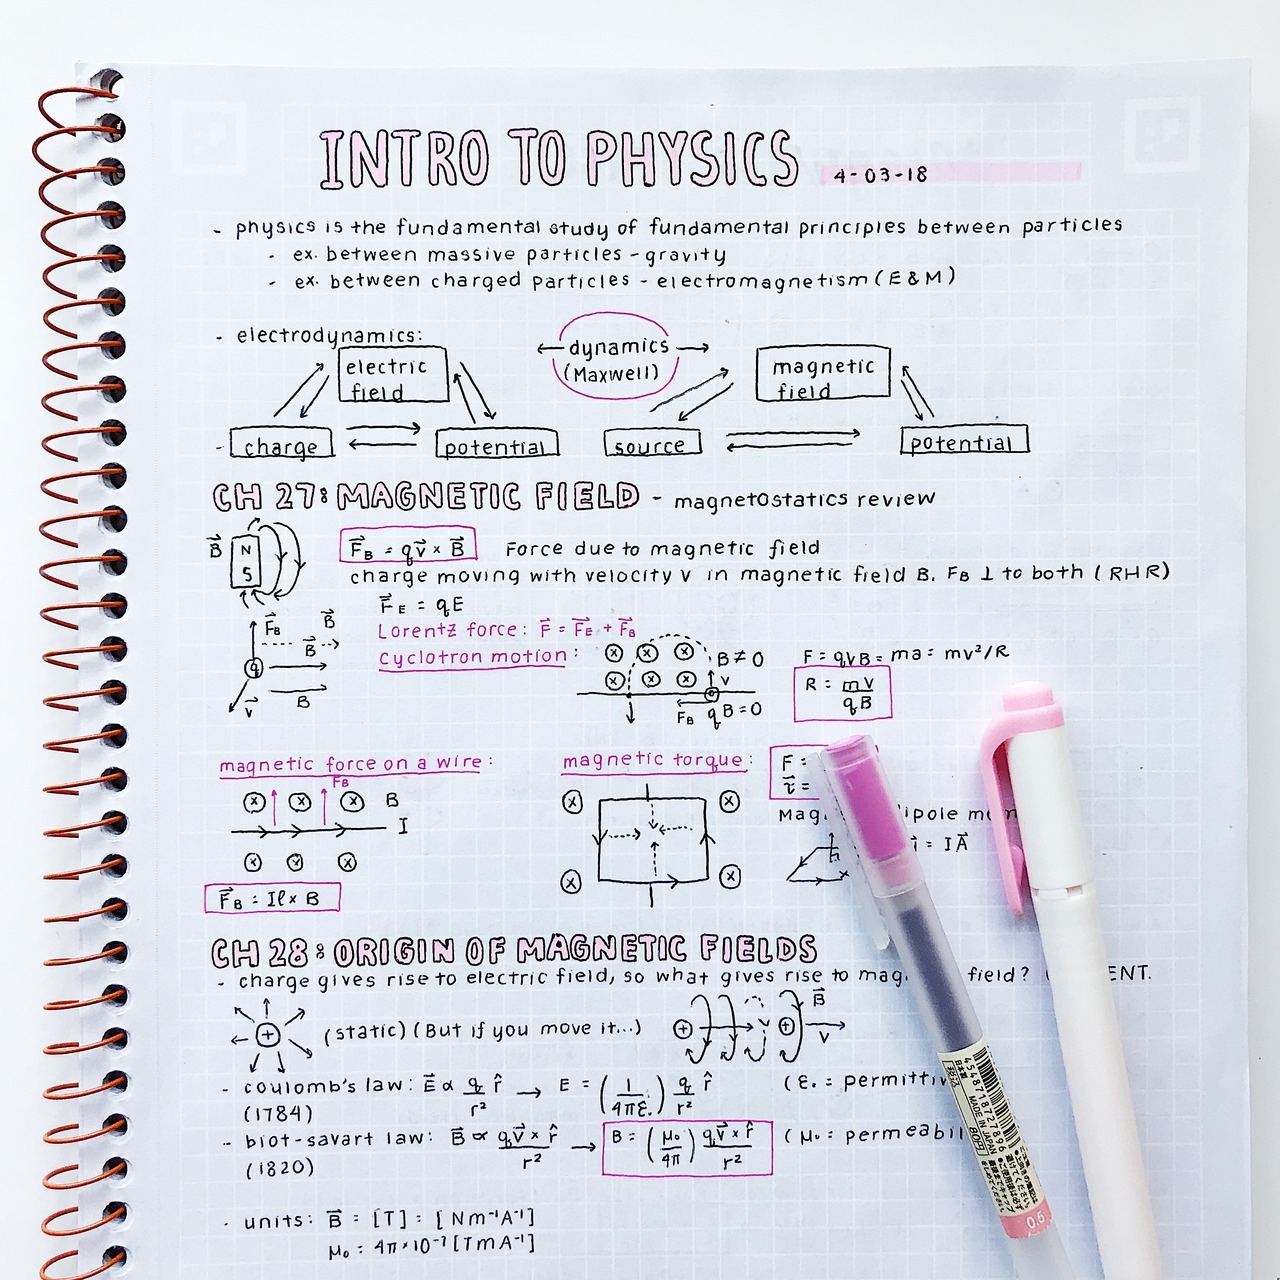 INTRO TO PHYSICS 4-03-18
- physics is the fundamental study of fundamental principles between particles
- ex. between massive particles - gravity
- ex. between charged particles - electromagnetism (E & M)
- electrodynamics:
electric field
← dynamics →
(Maxwell)
magnetic field
- charge
potential
source
potential
CH 27: MAGNETIC FIELD - magnetostatics review
B⃗ N S
F⃗_B = qv⃗ × B⃗ Force due to magnetic field
charge moving with velocity v in magnetic field B. F_B ⊥ to both (RHR)
F⃗_E = qE
Lorentz force: F⃗ = F⃗_E + F⃗_B
F⃗_B B⃗
B⃗
q
v⃗ B
cyclotron motion: B ≠ 0 F = qvB = ma = mv²/R
v
F_B q B = 0
R = mv/qB
magnetic force on a wire:
F_B
B
I
F⃗_B = Iℓ × B
magnetic torque:
F =
τ⃗ =
= IA⃗
CH 28: ORIGIN OF MAGNETIC FIELDS
- charge gives rise to electric field, so what gives rise to field?
+ (static) (But if you move it...) + + B⃗ v
- coulomb's law: E⃗ ∝ q/r² r̂ → E = (1/4πε.) q/r² r̂ (ε. =
(1784)
- biot-savart law: B⃗ ∝ qv⃗ × r̂/r² → B = (μ₀/4π) qv⃗ × r̂/r² (μ₀ =
(1820)
- units: B⃗ = [T] = [Nm⁻¹A⁻¹]
μ₀ = 4π×10⁻⁷ [TmA⁻¹]
4548718727896
MADE IN JAPAN
日本製
税込
80円
0.5